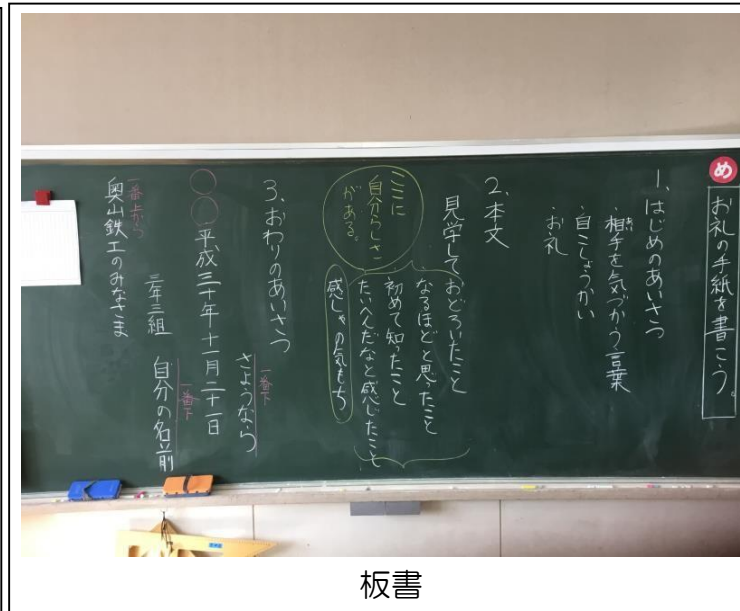 め
お礼の手紙を書こう。
1、はじめのあいさつ
・相手を気づかう言葉
あい
・自こしょうかい
・お礼
2、本文
見学しておどろいたこと
なるほどと思ったこと
初めて知ったこと
たいへんだなと感じたこと
感しゃの気もち
ここに
自分らしさ
がある。
3、おわりのあいさつ
さようなら
一番下
○○平成三十年十一月二十一日
三年三組 自分の名前
一番下
一番上から
奥山鉄工のみなさま
板書